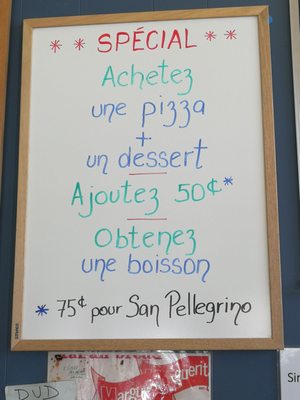 ** SPÉCIAL **
Achetez
une pizza
+
un dessert
Ajoutez 50¢*
Obtenez
une boisson
* 75¢ pour San Pellegrino
DVD